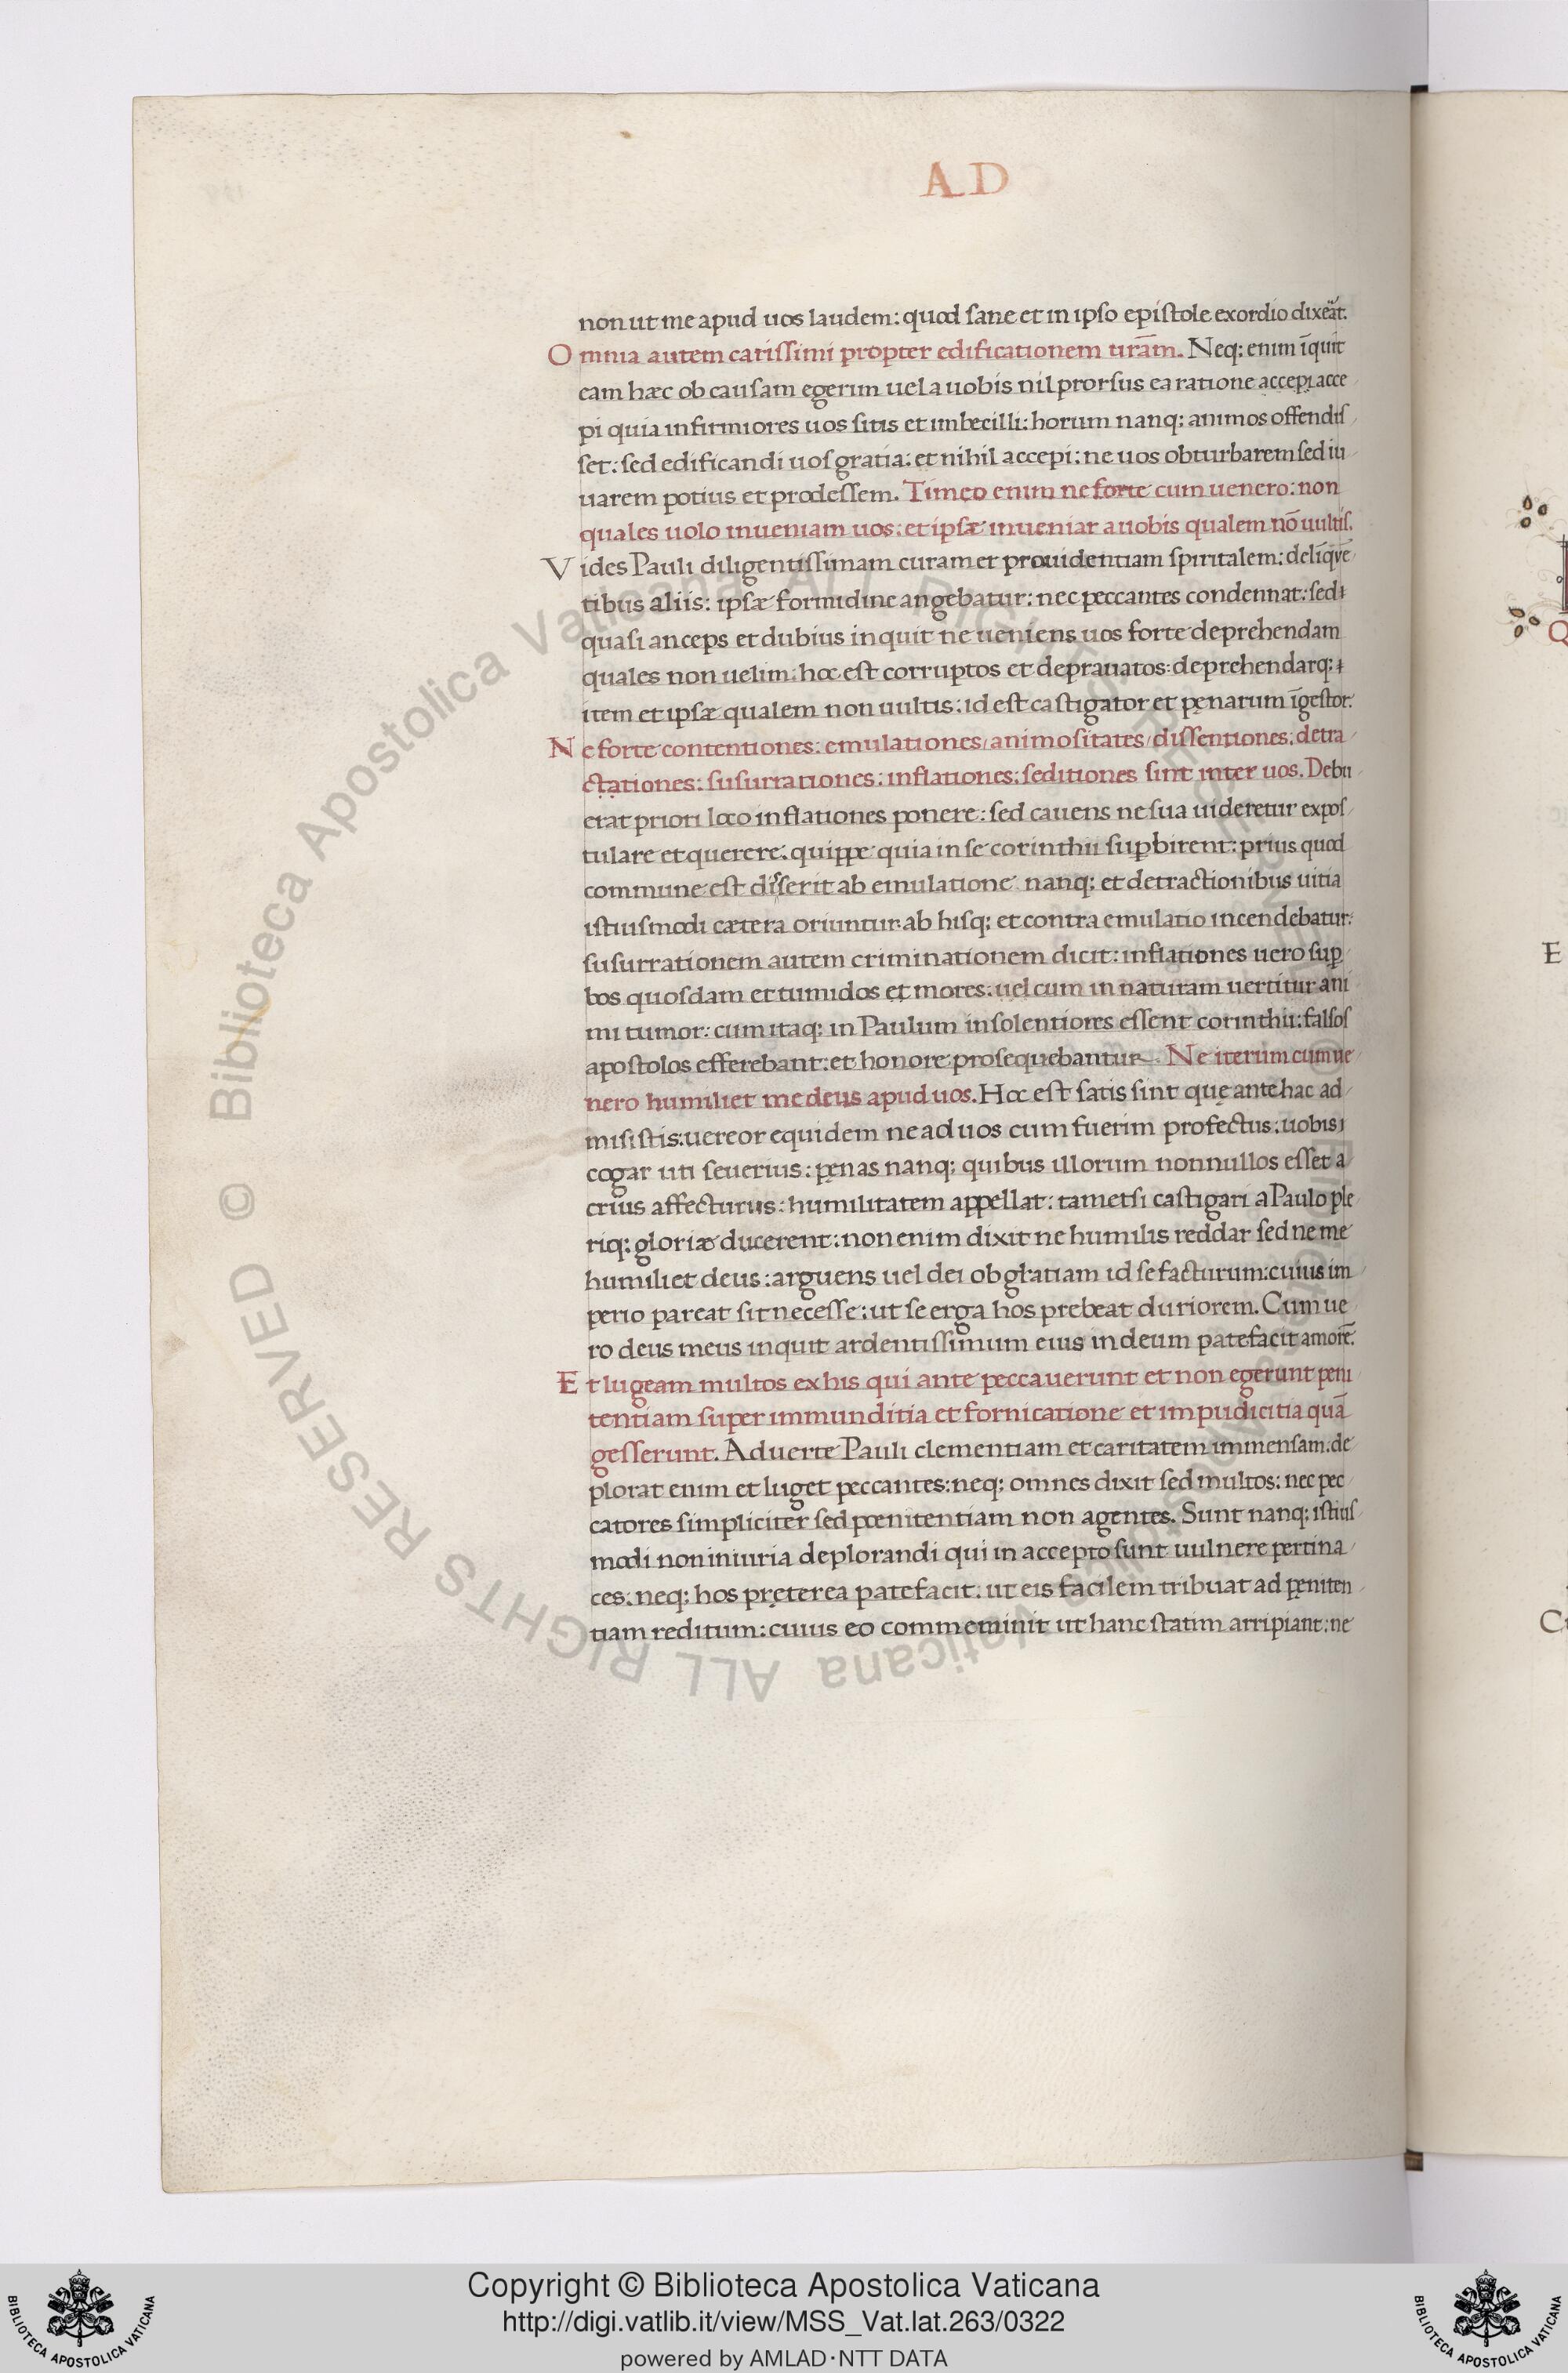 AD
non ut me apud uos laudem: quod sane et in ipso epistole exordio dixeãt.
Omnia autem carissimi propter edificationem urãm. Neq; enim ĩquit
eam hæc ob causam egerim uel a uobis nil prorsus ea ratione accepi acce
pi quia infirmiores uos sitis et imbecilli: horum nanq; animos offendis
set: sed edificandi uos gratia: et nihil accepi: ne uos obturbarem sed iu
uarem potius et prodessem. Timeo enim ne forte cum uenero: non
quales uolo inueniam uos: et ipsæ inueniar a uobis qualem nõ uultis.
Vides Pauli diligentissimam curam et prouidentiam spiritalem: delĩqvẽ
tibus aliis: ipsæ formidine angebatur: nec peccantes condennat: sed
quasi anceps et dubius inquit ne ueniens uos forte deprehendam
quales non uelim: hoc est corruptos et deprauatos: deprehendarq;
item et ipsæ qualem non uultis: id est castigator et pęnarum ĩgestor.
Ne forte contentiones: emulationes/ animositates/ dissentiones: detra
ctationes: susurrationes: inflationes: seditiones sint inter uos. Debu
erat priori loco inflationes ponere: sed cauens ne sua uideretur expos
tulare et querere: quippe quia in se corinthii supbirent: prius quod
commune est diserit ab emulatione nanq; et detractionibus uitia
istiusmodi cætera oriuntur ab hisq; et contra emulatio incendebatur:
susurrationem autem criminationem dicit: inflationes uero sup
bos quosdam et tumidos et mores: uel cum in naturam uertitur ani
mi tumor: cum itaq; in Paulum insolentiores essent corinthii: falsos
apostolos efferebant: et honore prosequebantur. Ne iterum cum ue
nero humiliet me deus apud uos. Hoc est satis sint quę ante hac ad
misistis: uereor equidem ne ad uos cum fuerim profectus: uobis
cogar uti seuerius: pęnas nanq; quibus illorum nonnullos esset a
crius affecturus: humilitatem appellat: tametsi castigari a Paulo ple
riq; gloriæ ducerent: non enim dixit ne humilis reddar sed ne me
humiliet deus: arguens uel dei ob gratiam id se facturum: cuius im
perio pareat sit necesse: ut se erga hos prebeat duriorem. Cum ue
ro deus meus inquit ardentissimum eius in deum patefacit amorẽ.
Et lugeam multos ex his qui ante peccauerunt et non egerunt peni
tentiam super immunditia et fornicatione et impudicitia quã
gesserunt. Aduerte Pauli clementiam et caritatem immensam: de
plorat enim et luget peccantes: neq; omnes dixit sed multos: nec pec
catores simpliciter sed poenitentiam non agentes. Sunt nanq; istius
modi non iniuria deplorandi qui in accepto sunt uulnere pertina
ces: neq; hos pręterea patefacit: ut eis facilem tribuat ad pęniten
tiam reditum: cuius eo commeminit ut hanc statim arripiant: ne
Q
E
C
© Biblioteca Apostolica Vaticana ALL RIGHTS RESERVED
Copyright © Biblioteca Apostolica Vaticana
http://digi.vatlib.it/view/MSS_Vat.lat.263/0322
powered by AMLAD·NTT DATA
BIBLIOTECA APOSTOLICA VATICANA
BIBLIOTECA APOSTOLICA VATICANA